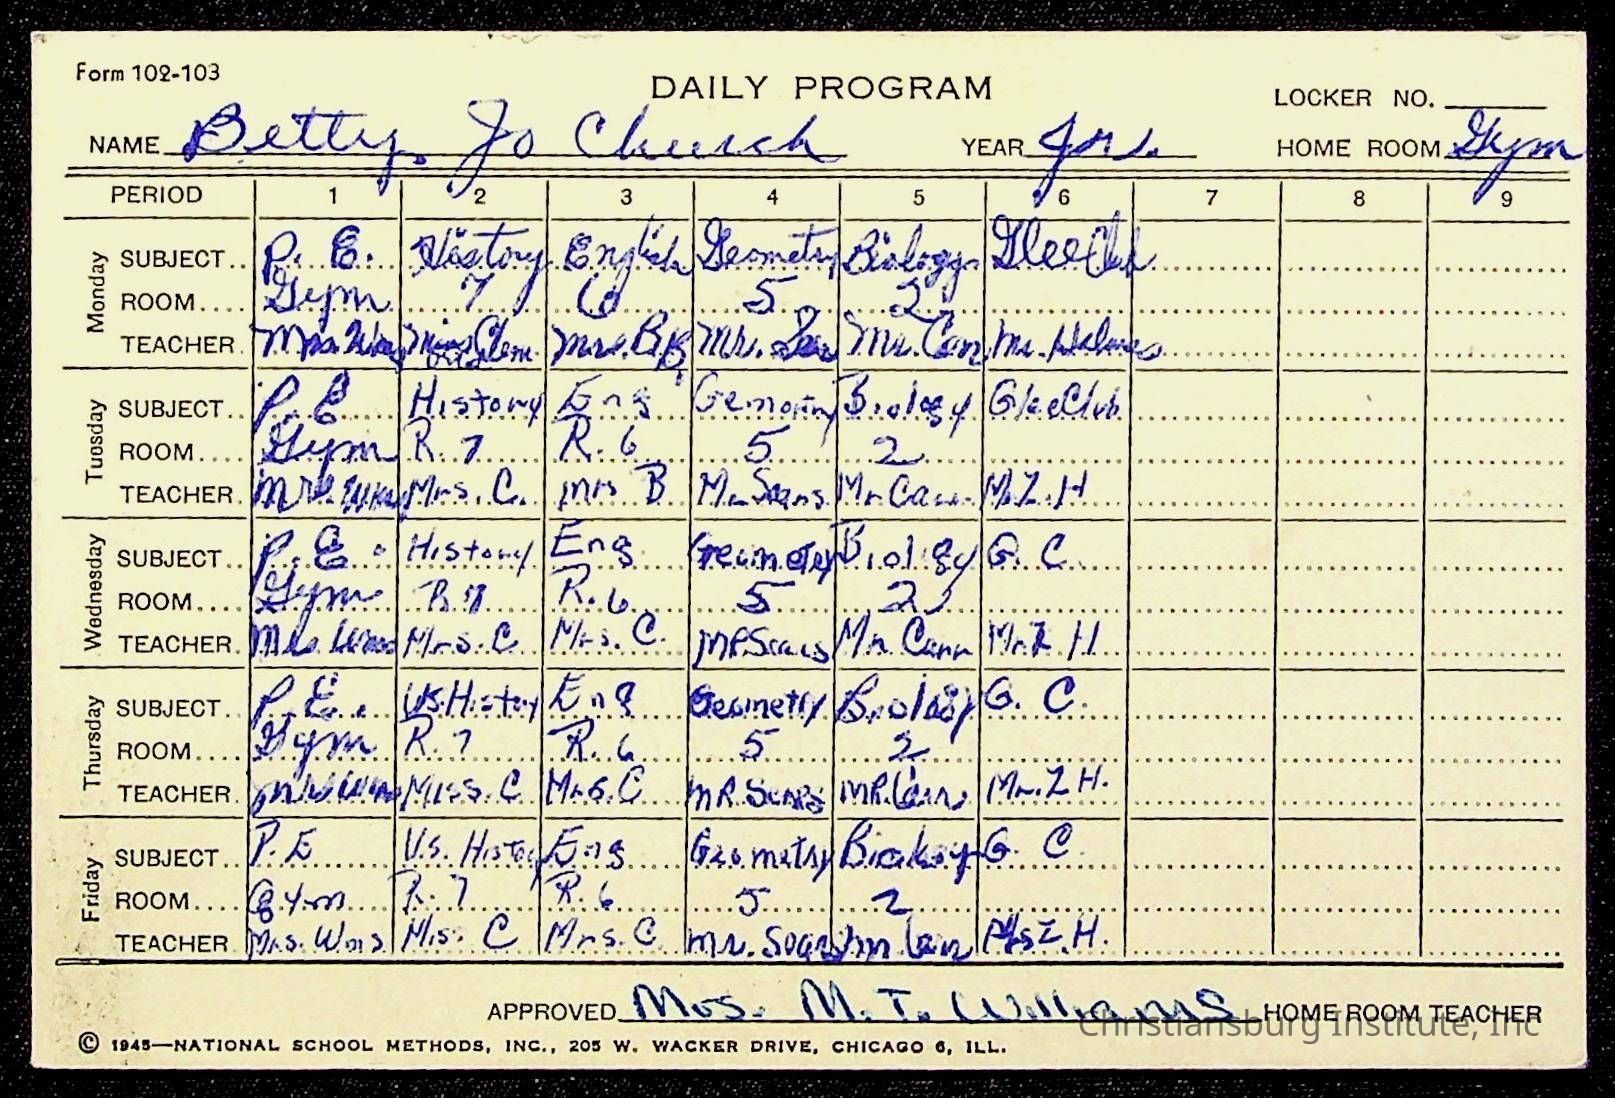 Form 102-103
DAILY PROGRAM
LOCKER NO.
NAME Betty Jo Church YEAR Jr. HOME ROOM Gym
PERIOD 1 2 3 4 5 6 7 8 9
Monday
SUBJECT P. E. History English Geometry Biology Glee Club
ROOM Gym 7 6 5 2
TEACHER Mrs. Miss Clem Mrs. B.B Mr. Mr. Carr Mr. Holmes
Tuesday
SUBJECT P. E History Eng Gemortry Biology Glee Club
ROOM Gym R. 7 R. 6 5 2
TEACHER Mrs. Mrs. C. Mrs B Mr Sears Mr Carr M. Z. H
Wednesday
SUBJECT P. E. History Eng Geometry Biology G. C.
ROOM Gym R 7 R. 6 5 2
TEACHER Mrs Mrs. C Mrs. C. MR Sears Mr Carr Mr. Z H
Thursday
SUBJECT P. E. US. History Eng Geometry Biology G. C.
ROOM Gym R. 7 R. 6 5 2
TEACHER Mrs Miss. C Mrs. C MR Sears MR. Carr Mr. Z H.
Friday
SUBJECT P. E U.S. History Eng Geometry Biology G. C
ROOM Gym R. 7 R. 6 5 2
TEACHER Mrs. Wms Mis. C Mrs. C Mr. Sears Mr Carr Z. H.
APPROVED Mrs. M. T. Williams HOME ROOM TEACHER
Christiansburg Institute, Inc
© 1945—NATIONAL SCHOOL METHODS, INC., 205 W. WACKER DRIVE, CHICAGO 6, ILL.